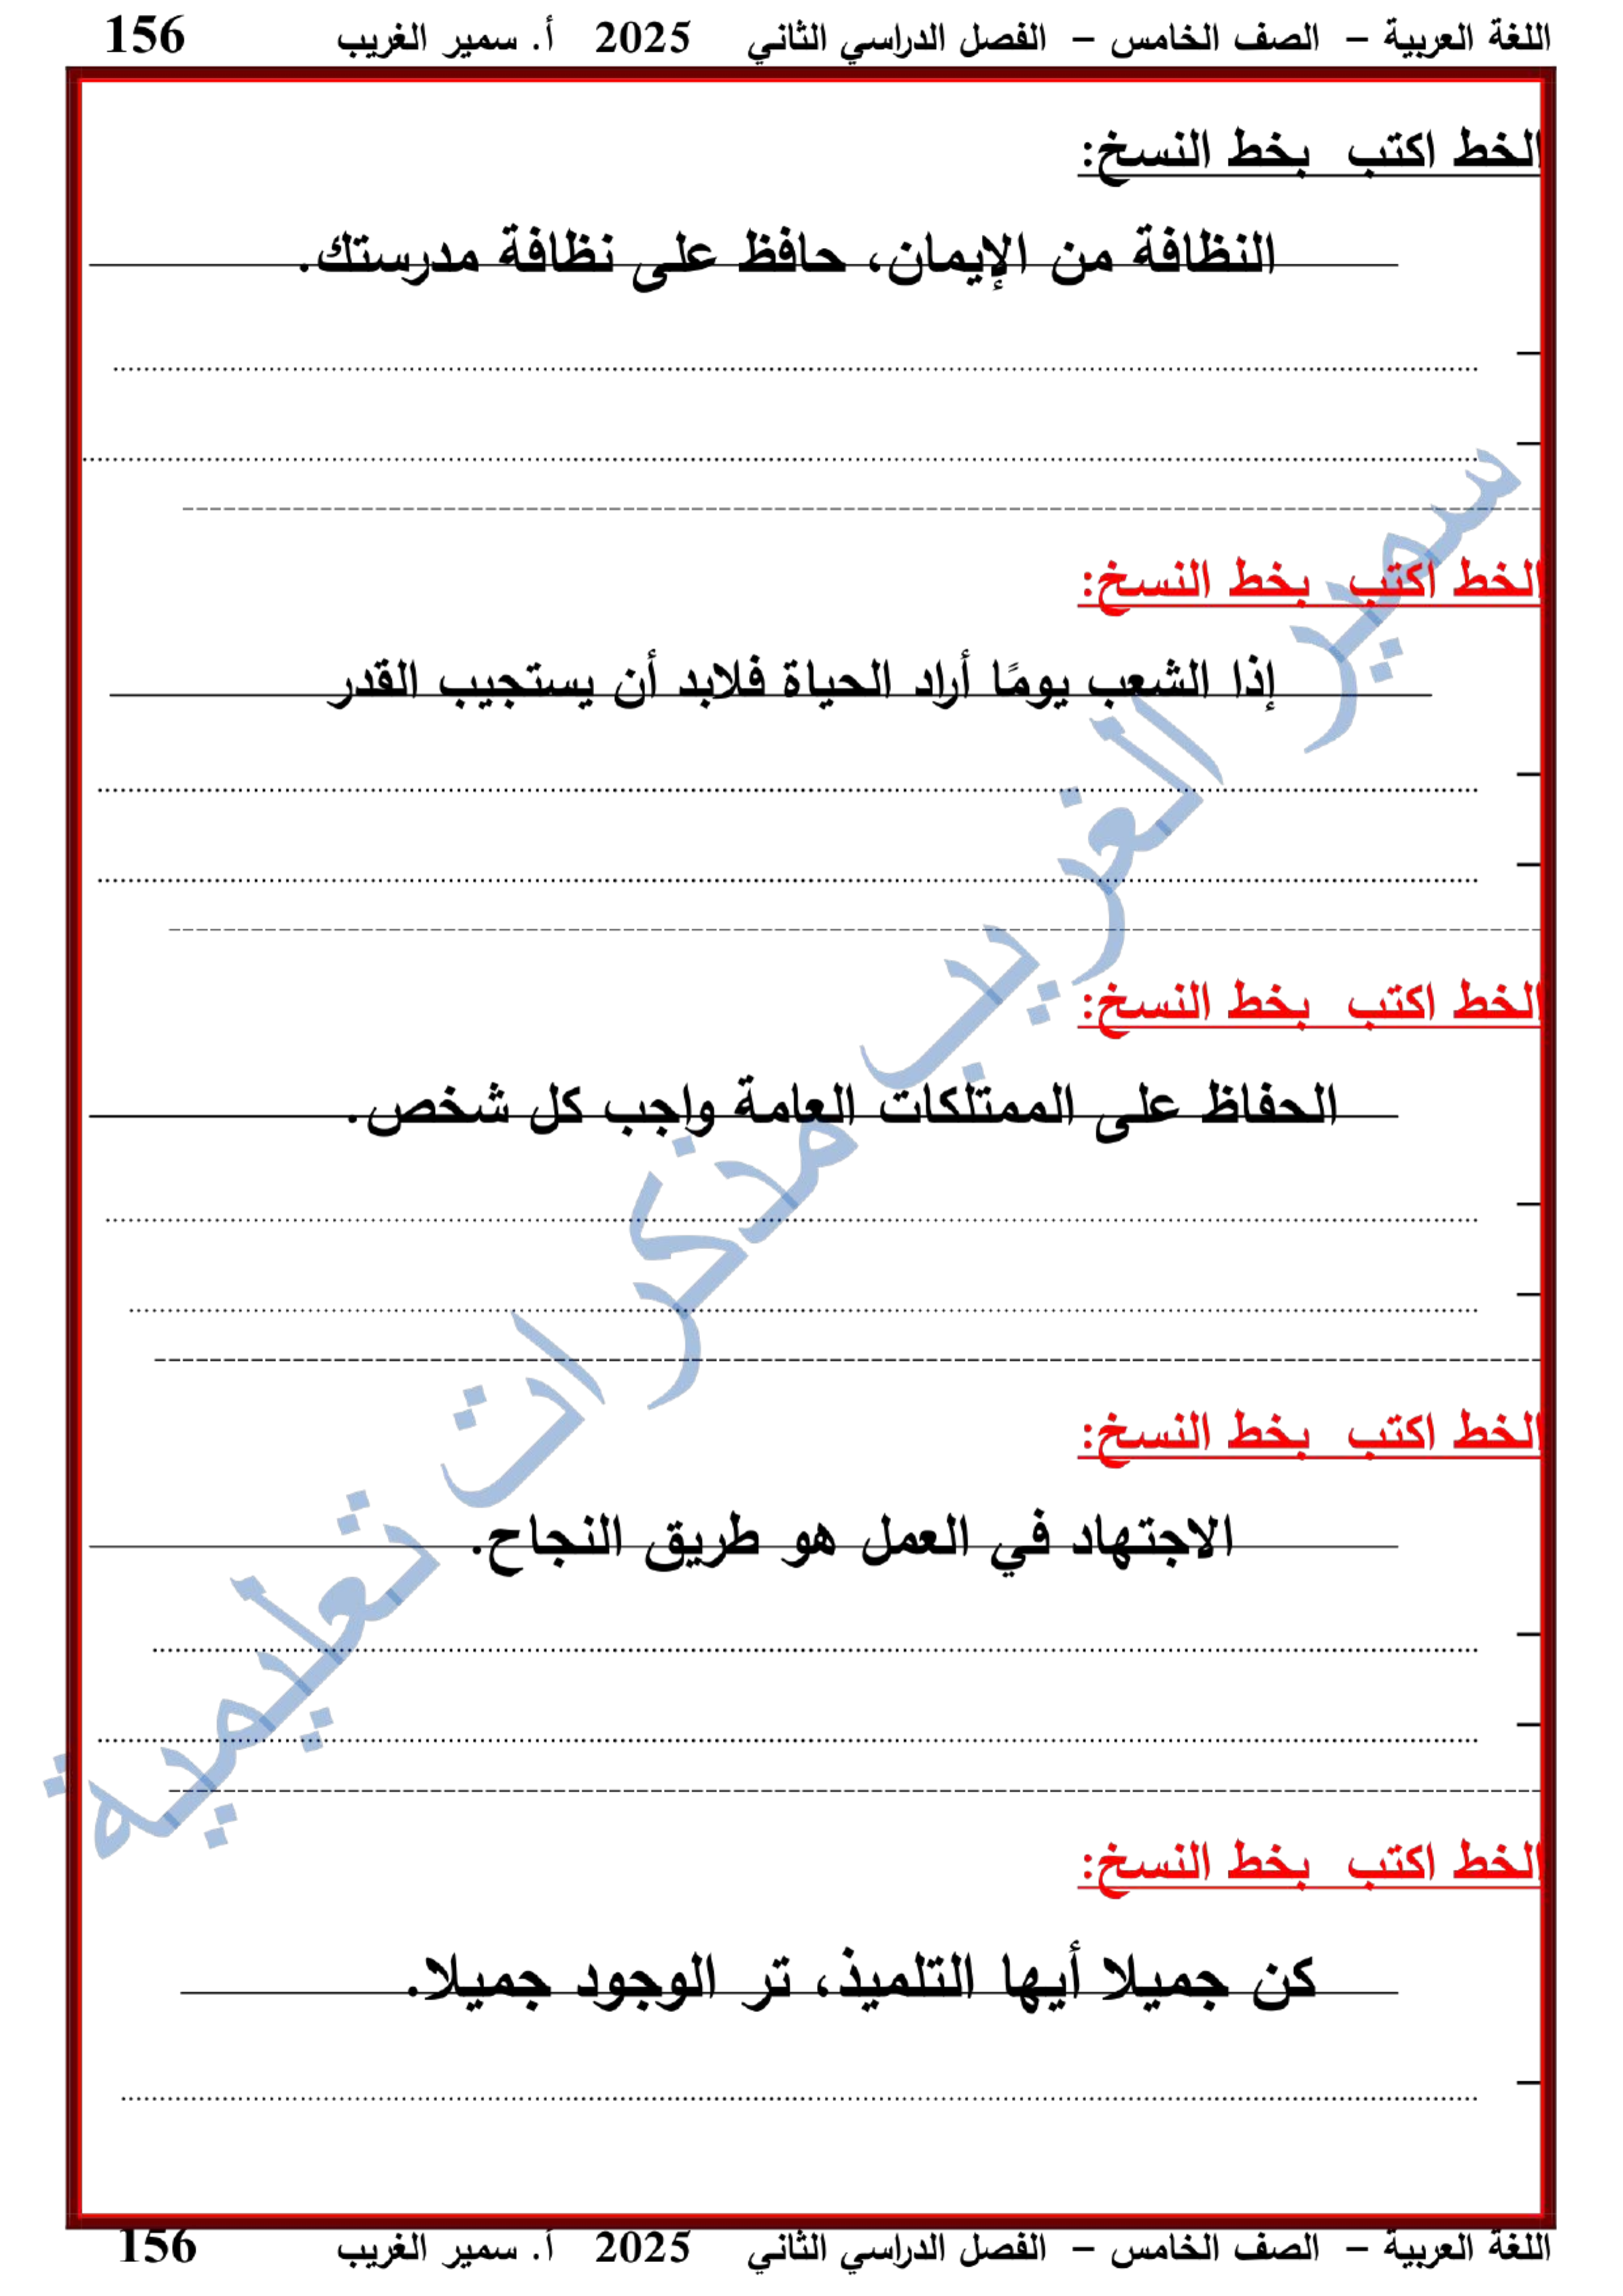 اللغة العربية – الصف الخامس – الفصل الدراسي الثاني 2025 أ. سمير الغريب 156
الخط اكتب بخط النسخ:
النظافة من الإيمان، حافظ على نظافة مدرستك.
الخط اكتب بخط النسخ:
إذا الشعب يومًا أراد الحياة فلابد أن يستجيب القدر
الخط اكتب بخط النسخ:
الحفاظ على الممتلكات العامة واجب كل شخص.
الخط اكتب بخط النسخ:
الاجتهاد في العمل هو طريق النجاح.
الخط اكتب بخط النسخ:
كن جميلا أيها التلميذ، تر الوجود جميلا.
سمير الغريب مذكرات تعليمية
اللغة العربية – الصف الخامس – الفصل الدراسي الثاني 2025 أ. سمير الغريب 156